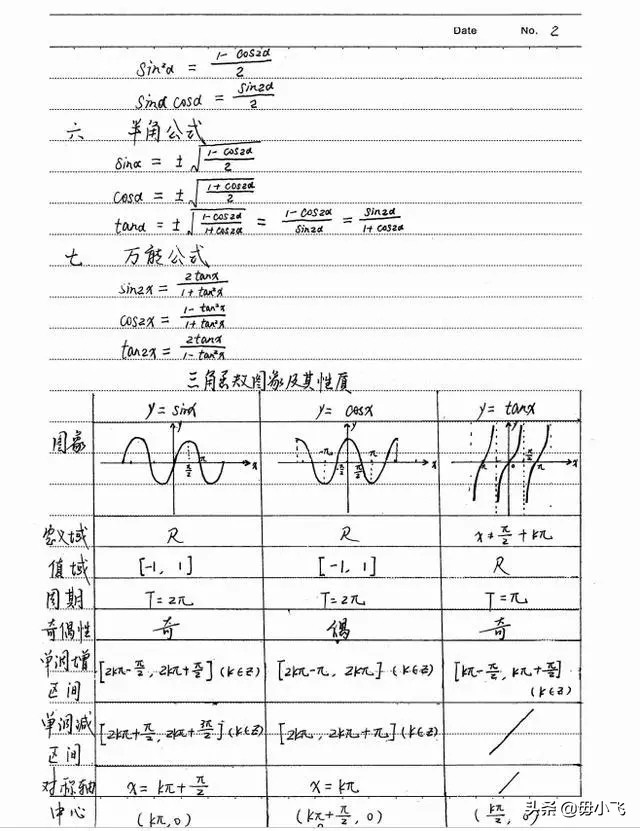 Date No. 2
sin²α = (1 - cos2α)/2
sinα cosα = sin2α/2
六 半角公式
sinα = ±√((1 - cos2α)/2)
cosα = ±√((1 + cos2α)/2)
tanα = ±√((1 - cos2α)/(1 + cos2α)) = (1 - cos2α)/sin2α = sin2α/(1 + cos2α)
七 万能公式
sin2x = 2tanx/(1 + tan²x)
cos2x = (1 - tan²x)/(1 + tan²x)
tan2x = 2tanx/(1 - tan²x)
三角函数图象及其性质
y = sinx y = cosx y = tanx
图象 y x π/2 π y x -π -π/2 π/2 π y x 0 π/2 π
定义域 R R x ≠ π/2 + kπ
值域 [-1, 1] [-1, 1] R
周期 T = 2π T = 2π T = π
奇偶性 奇 偶 奇
单调增区间 [2kπ - π/2, 2kπ + π/2] (k∈Z) [2kπ - π, 2kπ] (k∈Z) [kπ - π/2, kπ + π/2] (k∈Z)
单调减区间 [2kπ + π/2, 2kπ + 3π/2] (k∈Z) [2kπ, 2kπ + π] (k∈Z) /
对称轴 x = kπ + π/2 x = kπ /
中心 (kπ, 0) (kπ + π/2, 0) (kπ/2, 0)
头条 @毋小飞